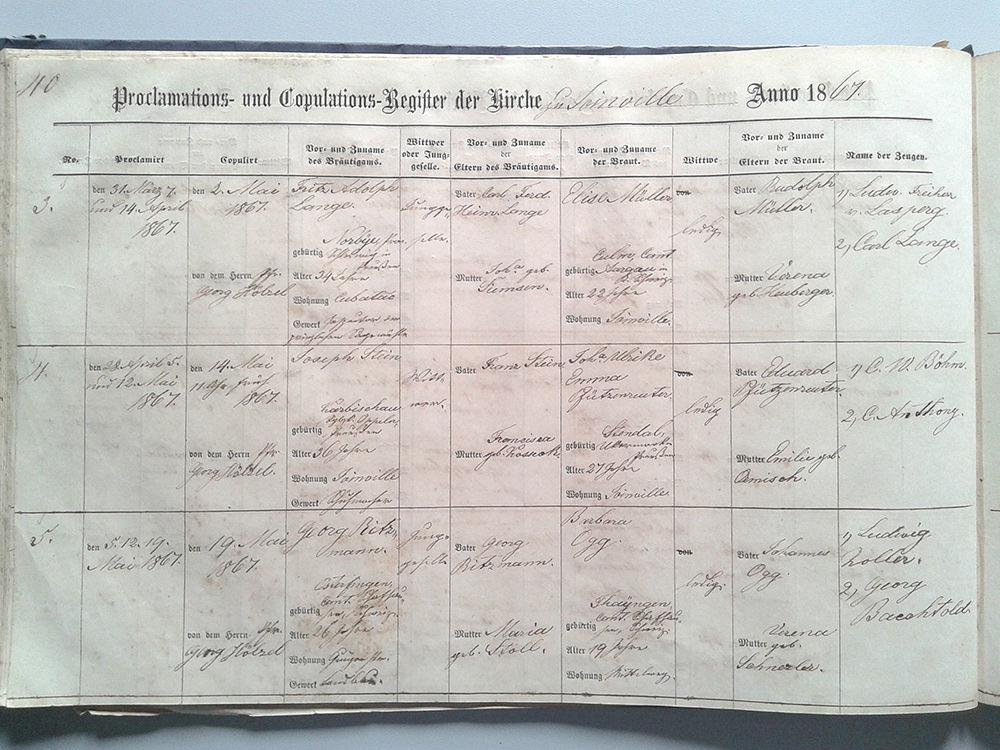 40
Proclamations- und Copulations-Register der Kirche zu Joinville Anno 1867.
No. Proclamirt Copulirt Vor- und Zuname des Bräutigams. Wittwer oder Jung-geselle. Vor- und Zuname der Eltern des Bräutigams. Vor- und Zuname der Braut. Wittwe Vor- und Zuname der Eltern der Braut. Name der Zeugen.
3.
den 31. März, 7.
und 14. April
1867.
den 2. Mai
1867.
von dem Herrn Pfr.
Georg Hölzel
Fritz Adolph
Lange.
gebürtig Schleswig in
Preußen
Alter 34 Jahre
Wohnung Cubatao
Gewerk Inspector der
Jungge-
selle.
Vater Carl Ferd.
Heinr. Lange
Mutter Joh.ª geb.
Siemsen.
Elise Müller
Culm, Cant
gebürtig Aargau in
d. Schweiz.
Alter 22 Jahre
Wohnung Joinville.
von
ledig.
Vater Rudolph
Müller.
Mutter Verena
geb. Heuberger.
1, Ludw. Freiher
v. Lasperg.
2, Carl Lange.
4.
den 28. April, 5.
und 12. Mai
1867.
den 14. Mai
11 Uhr früh
1867.
von dem Herrn Pfr
Georg Hölzel.
Joseph Stein
gebürtig Oppeln,
Preußen
Alter 36 Jahre
Wohnung Joinville
Gewerk Schuhmacher
Witt-
wer.
Vater Franz Stein
Francisca
Mutter geb. Kossack.
Joh.ª Ulrike
Emma
Pfützenreuter.
Stendal,
gebürtig Uckermark
Preußen
Alter 27 Jahre
Wohnung Joinville.
von
ledig
Vater Eduard
Pfützenreuter.
Mutter Emilie geb
Camisch.
1, C. W. Böhm.
2, C. Anthony.
5.
den 5. 12. 19.
Mai 1867.
den 19. Mai
1867.
von dem Herrn Pfr.
Georg Hölzel
Georg Ritz-
mann.
Osterfingen,
gebürtig Cant. Schaffhau-
sen, Schweiz.
Alter 26 Jahre
Wohnung
Gewerk Landbau.
Jung-
geselle
Vater Georg
Ritzmann.
Mutter Maria
geb. Stoll.
Barbara
Ogg.
Thayngen,
gebürtig Cant. Schaffhau-
sen, Schweiz.
Alter 19 Jahre
Wohnung
von
ledig.
Vater Johannes
Ogg.
Verena
Mutter geb.
Schnezler.
1, Ludwig
Zoller.
2, Georg
Baechtold.